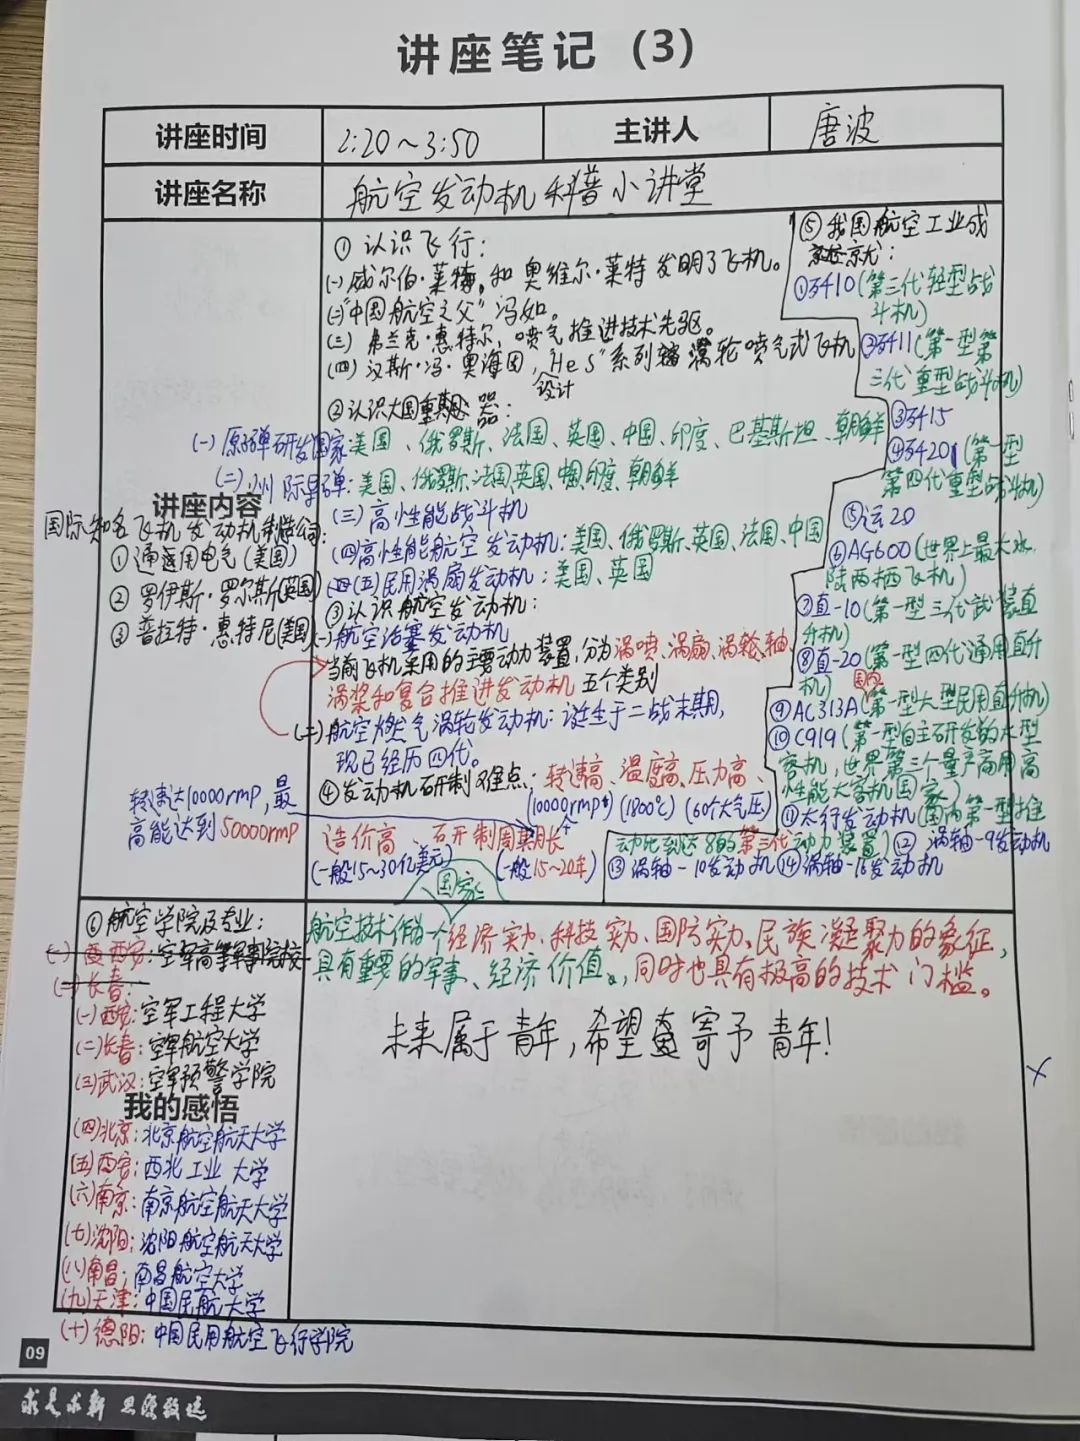 讲座笔记（3）
讲座时间
2:20~3:50
主讲人
唐波
讲座名称
航空发动机科普小讲堂
讲座内容
①认识飞行：
(一)威尔伯·莱特，和奥维尔·莱特发明了飞机。
(二)"中国航空之父"冯如。
(三)弗兰克·惠特尔，喷气推进技术先驱。
(四)汉斯·冯·奥海因，设计"HeS"系列涡轮喷气式飞机
②认识大国重器：
(一)原子弹研发国家：美国、俄罗斯、法国、英国、中国、印度、巴基斯坦、朝鲜
(二)洲际导弹：美国、俄罗斯、法国、英国、中国、印度、朝鲜
(三)高性能战斗机
(四)高性能航空发动机：美国、俄罗斯、英国、法国、中国
(五)民用涡扇发动机：美国、英国
国际知名飞机发动机制造公司：
①通用电气(美国)
②罗伊斯·罗尔斯(英国)
③普拉特·惠特尼(美国)
③认识航空发动机：
(一)航空活塞发动机
当前飞机采用的主要动力装置，分为涡喷、涡扇、涡轮、轴、
涡桨和复合推进发动机五个类别
(二)航空燃气涡轮发动机：诞生于二战末期，
现已经历四代。
④发动机研制难点：转速高、温度高、压力高、
(10000rmp+)(1800℃)(60个大气压)
造价高、研制周期长
(一般15~30亿美元)(一般15~20年)
转速达10000rmp，最
高能达到50000rmp
⑤我国航空工业成
就：
①歼10(第三代轻型战
斗机)
②歼11(第一型第
三代重型战斗机)
③歼15
④歼20(第一型
第四代重型战斗机)
⑤运20
⑥AG600(世界上最大水
陆两栖飞机)
⑦直-10(第一型三代武装直
升机)
⑧直-20(第一型四代通用直升
机)
⑨AC313A(国家第一型大型民用直升机)
⑩C919(第一型自主研发的大型
客机，世界第三个量产商用高
性能大客机国家)
⑪太行发动机(国内第一型推
动比到达8的第三代动力装置)⑫涡轴-9发动机
⑬涡轴-10发动机⑭涡轴-16发动机
⑥航空学院及专业：
(一)西安：空军高等军事院校
(二)长春：
(一)西安：空军工程大学
(二)长春：空军航空大学
(三)武汉：空军预警学院
我的感悟
(四)北京：北京航空航天大学
(五)西安：西北工业大学
(六)南京：南京航空航天大学
(七)沈阳：沈阳航空航天大学
(八)南昌：南昌航空大学
(九)天津：中国民航大学
(十)德阳：中国民用航空飞行学院
航空技术作为一个国家经济实力、科技实力、国防实力、民族凝聚力的象征，
具有重要的军事、经济价值。同时也具有极高的技术门槛。
未来属于青年，希望寄予青年！
09
求是求新 思源致远